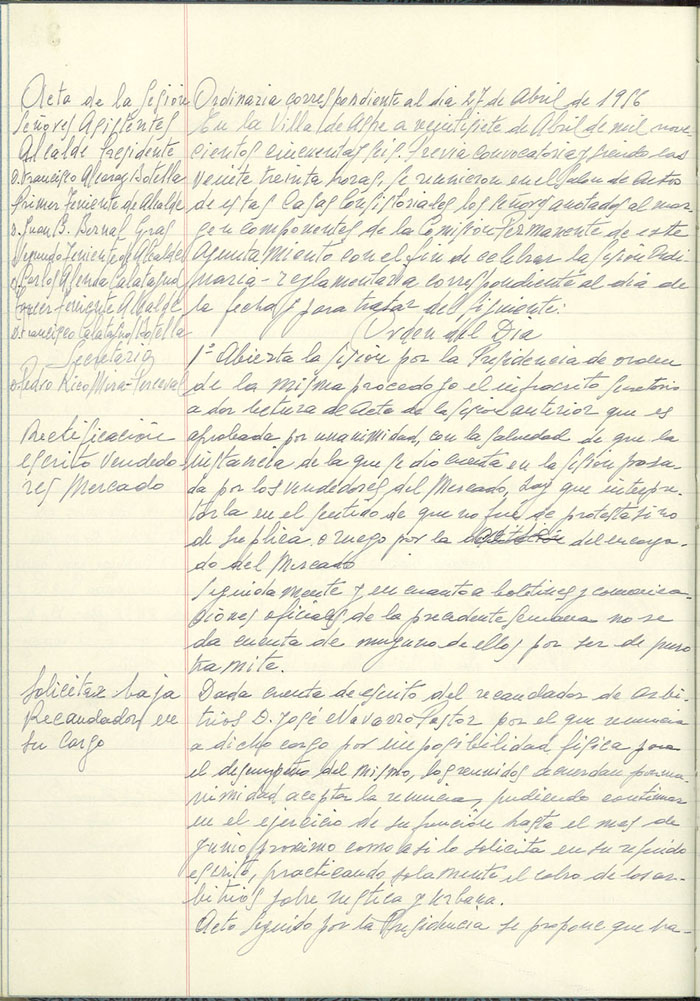 Acta de la Sesión Ordinaria correspondiente al dia 27 de Abril de 1956
Señores Asistentes
Alcalde Presidente
D. Francisco Alcaraz Botella
Primer Teniente de Alcalde
D. Juan B. Bernal Gras
Segundo Teniente de Alcalde
D. Carlos Asencio Calatayud
Tercer Teniente Alcalde
D. Francisco Calatayud Botella
Secretario
D. Pedro Rico Mira-Perceval
En la Villa de Aspe a veintisiete de Abril de mil nove-
cientos cincuenta y seis. Previa convocatoria y siendo las
veinte treinta horas, se reunieron en el Salon de Actos
de estas Casas Consistoriales los señores anotados al mar-
gen componentes de la Comision Permanente de este
Ayuntamiento con el fin de celebrar la Sesión Ordi-
naria - reglamentaria correspondiente al dia de
la fecha y para tratar del siguiente:
Orden del Dia
1º Abierta la Sesión por la Presidencia de orden
de la misma procedo yo el infrascrito Secretario
a dar lectura de Acta de la Sesion anterior que es
aprobada por unanimidad, con la salvedad de que la
instancia de la que se dio cuenta en la sesión pasa-
da por los vendedores del Mercado, hay que interpre-
tarla en el sentido de que no fue de protesta sino
de suplica o ruego por la del encarga-
do del Mercado
Rectificación
escrito vendedo-
res Mercado
Seguidamente y en cuanto a boletines y comunica-
ciones oficiales de la precedente semana no se
da cuenta de ninguno de ellos por ser de puro
tramite.
Solicitar baja
Recaudador en
su cargo
Dada cuenta de escrito del recaudador de arbi-
trios D. José Navarro Pastor por el que renuncia
a dicho cargo por imposibilidad fisica para
el desempeño del mismo, los reunidos acuerdan por una-
nimidad aceptar la renuncia, pudiendo continuar
en el ejercicio de su función hasta el mes de
Junio proximo como asi lo solicita en su referido
escrito, practicando solamente el cobro de los ar-
bitrios sobre rustica y urbana.
Acto seguido por la Presidencia se propone que ha-